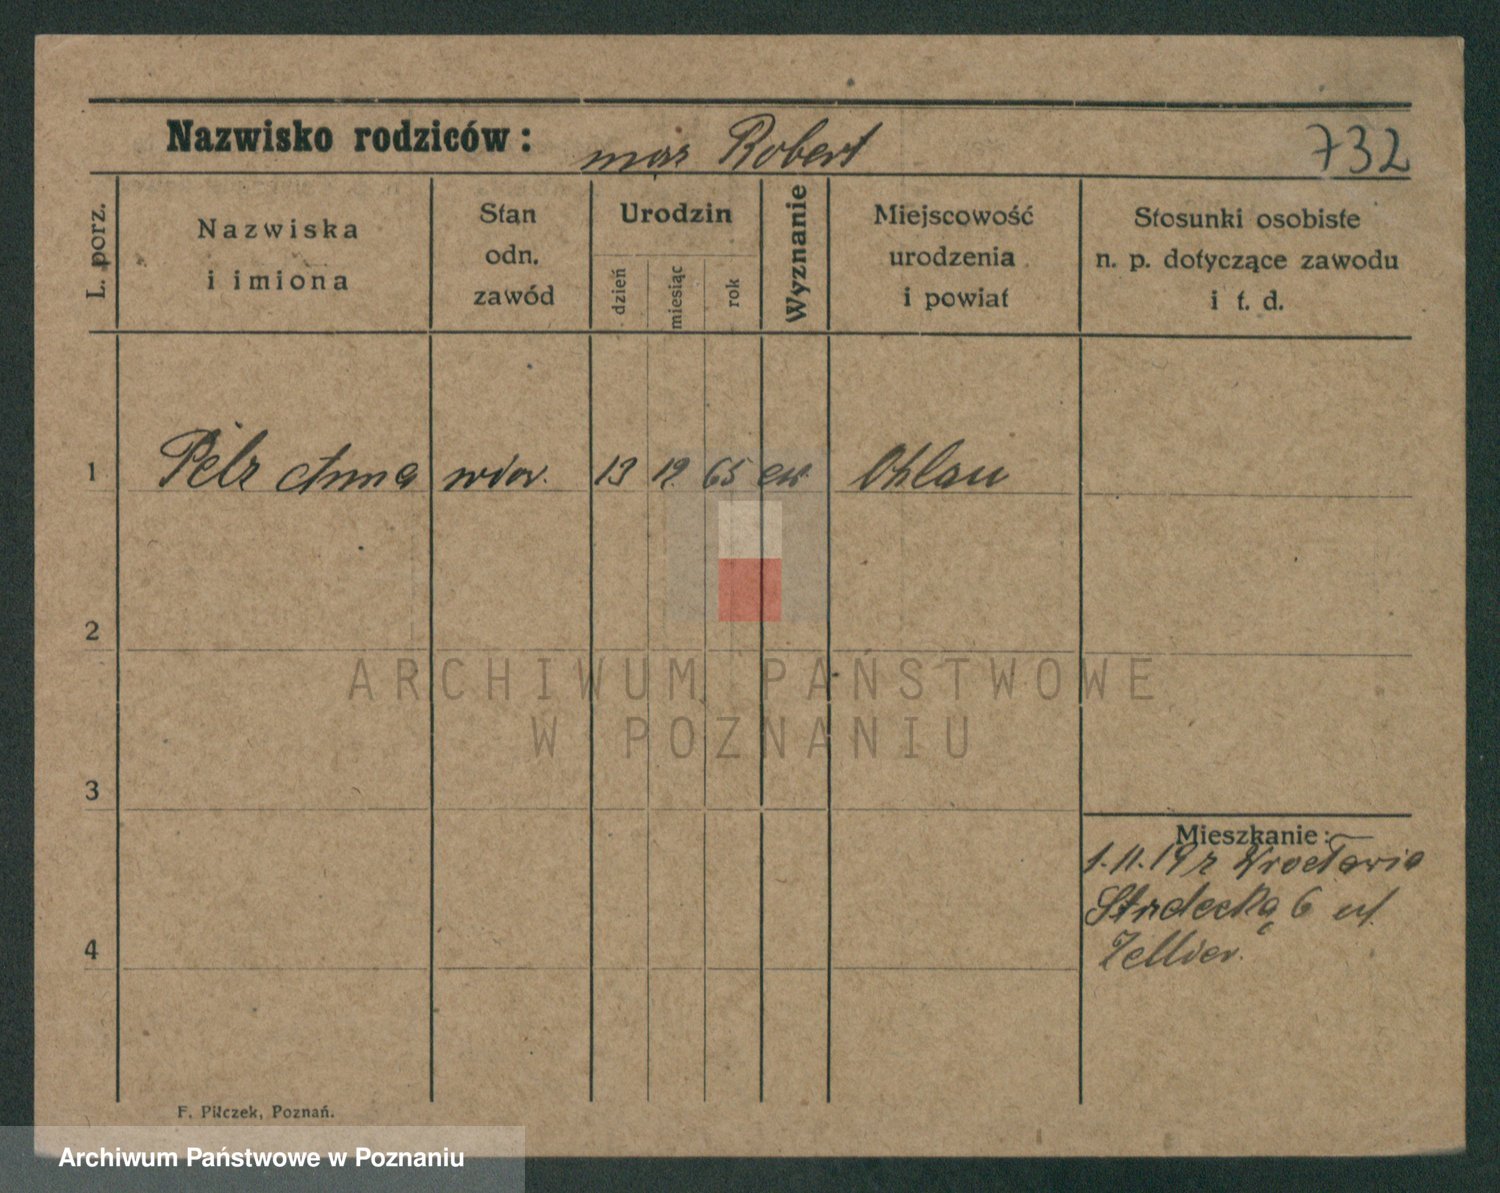 Nazwisko rodziców: mąż Robert 732
L. porz.
Nazwiska i imiona
Stan odn. zawód
Urodzin
dzień
miesiąc
rok
Wyznanie
Miejscowość urodzenia i powiat
Stosunki osobiste n. p. dotyczące zawodu i t. d.
1 Pelz Anna wdow. 13 12. 65 ew. Ohlau
2
ARCHIWUM PAŃSTWOWE
W POZNANIU
3
Mieszkanie:
1.11.19 z Wrocławia
Strzelecka 6 u
4
F. Pilczek, Poznań.
Archiwum Państwowe w Poznaniu